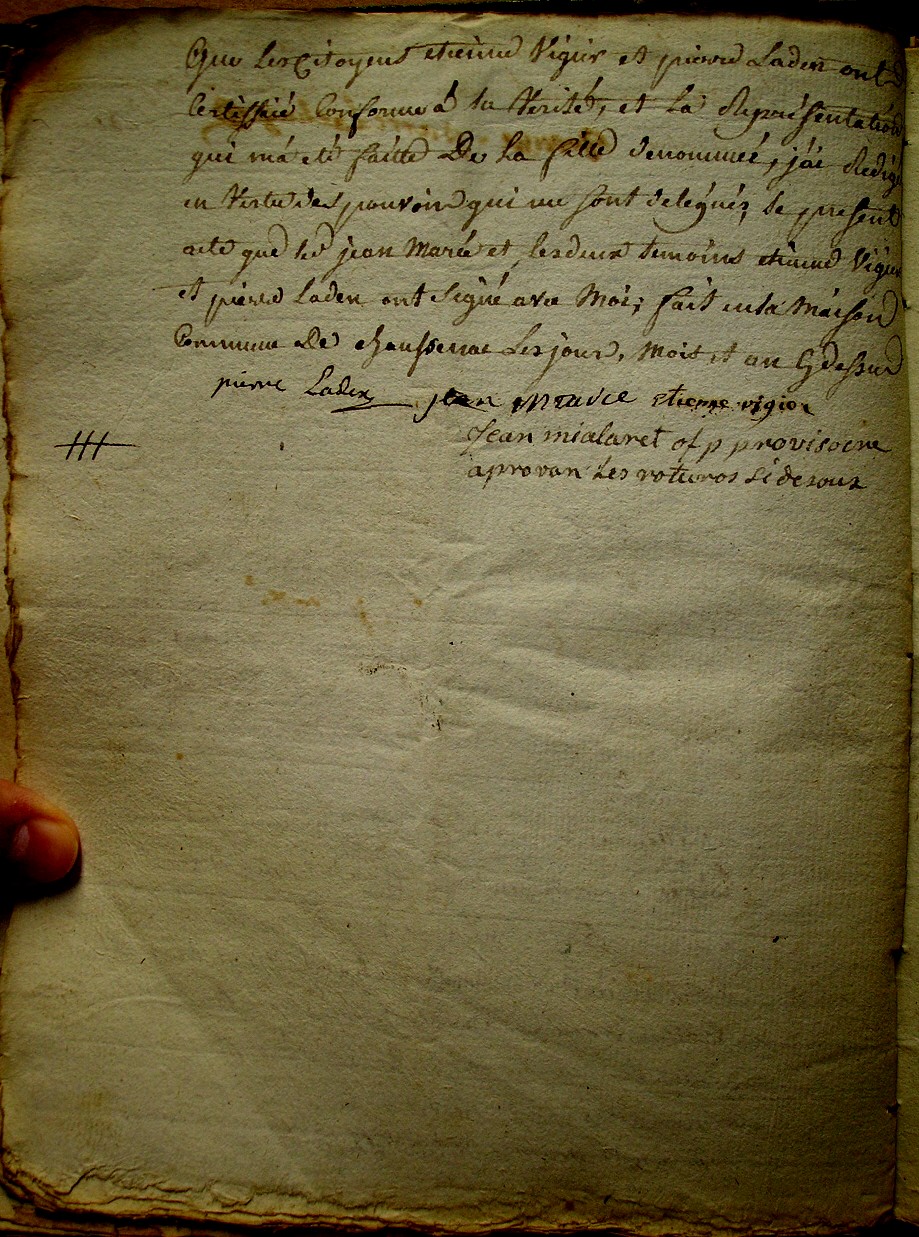 Que les Citoyens etienne Vigier et pierre Laden ont
Certiffié Conforme á la Verité, et la Representation
qui má eté faitte De la fille denommeé, j'ai Redigé
en Vertu des pouvoirs qui me sont delegués, le present
acte que led jean Marie et les deux temoins etienne Vigier
et pierre Laden ont Signé avec Moi; fait en la Maison
Commune De chaussenac Les jour, Mois et an Cy dessus
pierre Laden jean marie etienne vigier
Jean mialaret of p provisoire
aprovan les roturos si desoux